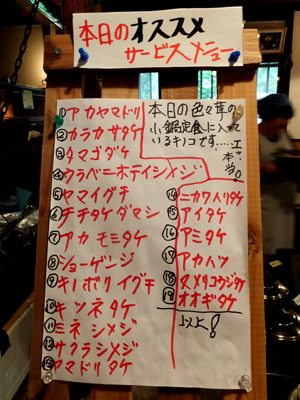 本日のオススメ
サービスメニュー
①アカヤマドリ
②カラカサタケ
③タマゴタケ
④ウラベニホテイシメジ
⑤ヤマイグチ
⑥チチタケダマシ
⑦アカモミタケ
⑧ショーゲンジ
⑨キノボリイグチ
⑩キツネタケ
⑪ミネシメジ
⑫サクラシメジ
⑬ヤマドリタケ
本日の色々茸の
小鍋定食に入って
いるキノコです……
本当!
⑭ニカワハリタケ
⑮アイタケ
⑯アミタケ
⑰アカハツ
⑱ヌメリコウジタケ
⑲オオギタケ
以上!